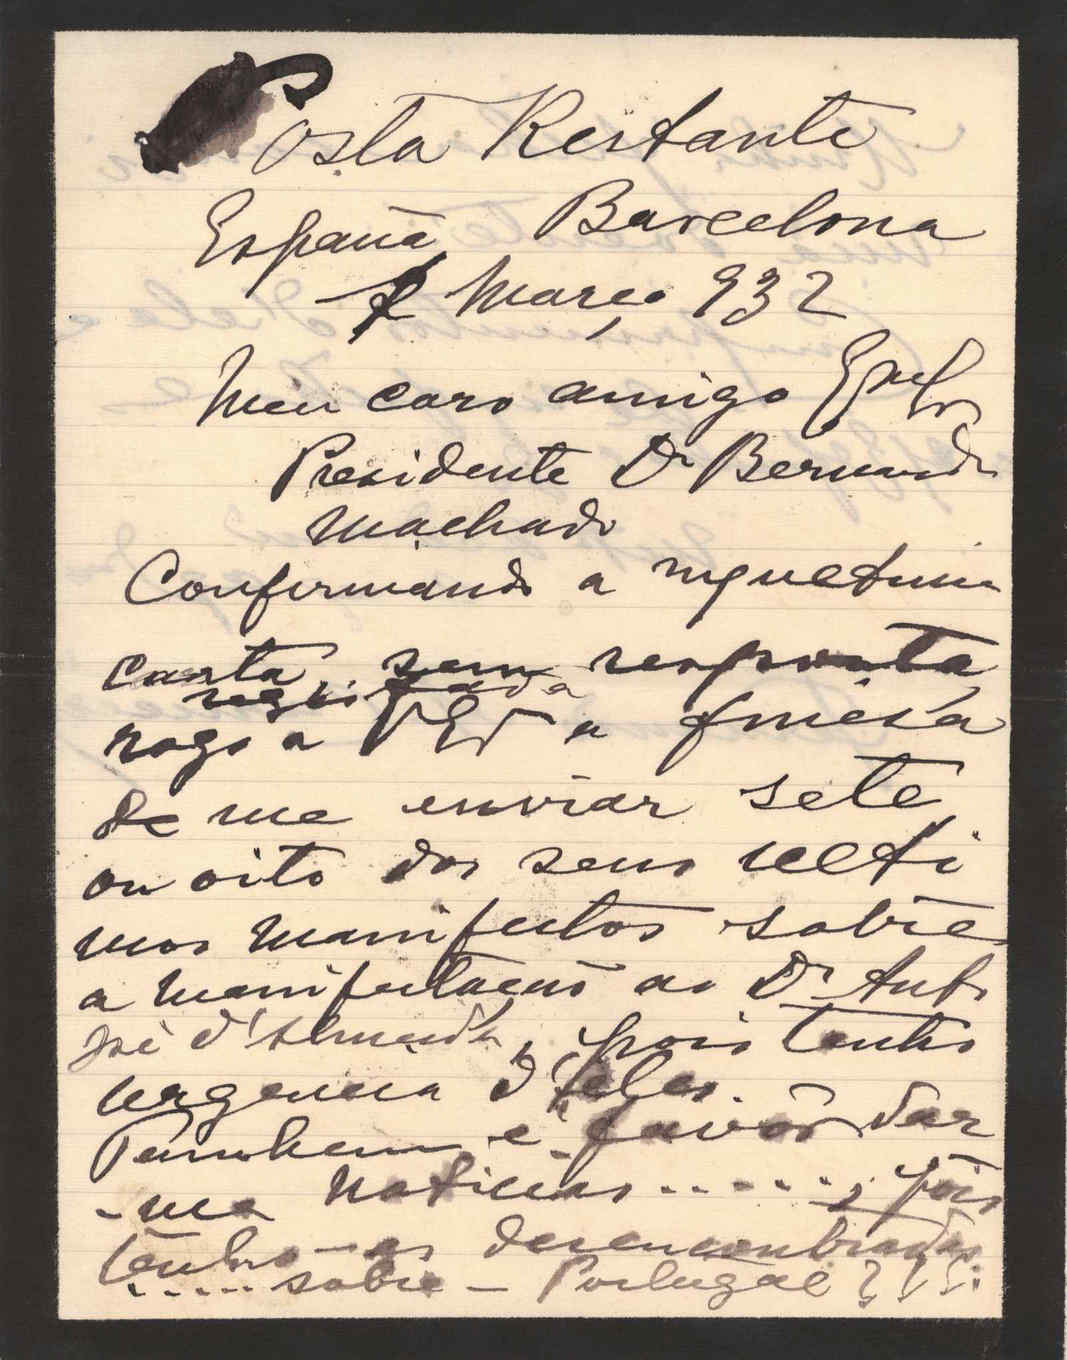 Posta Restante
España Barcelona
2 Março 932
Meu caro amigo Exmo Sr
Presidente Dr Bernardo
Machado
Confirmando a
carta sem resposta
registada
rogo a V Ex a fineza
de me enviar sete
ou oito dos seus ulti
mos manifestos sobre
a manifestação ao Dr Antº
José d'Almeida, pois tenho
urgencia d'eles.
Tambem é favôr dar
-me noticias ......, pois
tenho-as desencontradas
..... sobre - Portugal ???: